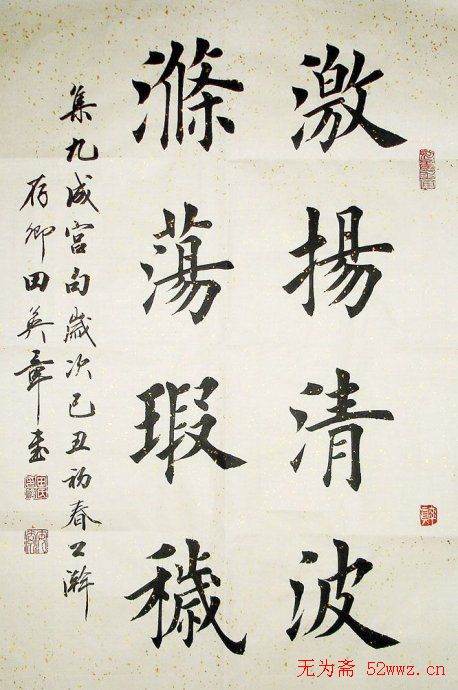 激揚清波
滌蕩瑕穢
集九成宮句歲次己丑初春之瀚
存卿田英章書
无为斋 52wwz.cn